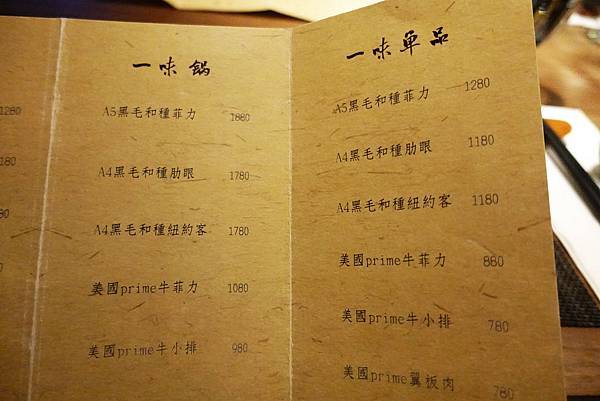 1280
180
80
80
一味鍋
A5黑毛和種菲力 1880
A4黑毛和種肋眼 1780
A4黑毛和種紐約客 1780
美國prime牛菲力 1080
美國prime牛小排 980
一味單品
A5黑毛和種菲力 1280
A4黑毛和種肋眼 1180
A4黑毛和種紐約客 1180
美國prime牛菲力 880
美國prime牛小排 780
美國prime翼板肉 780